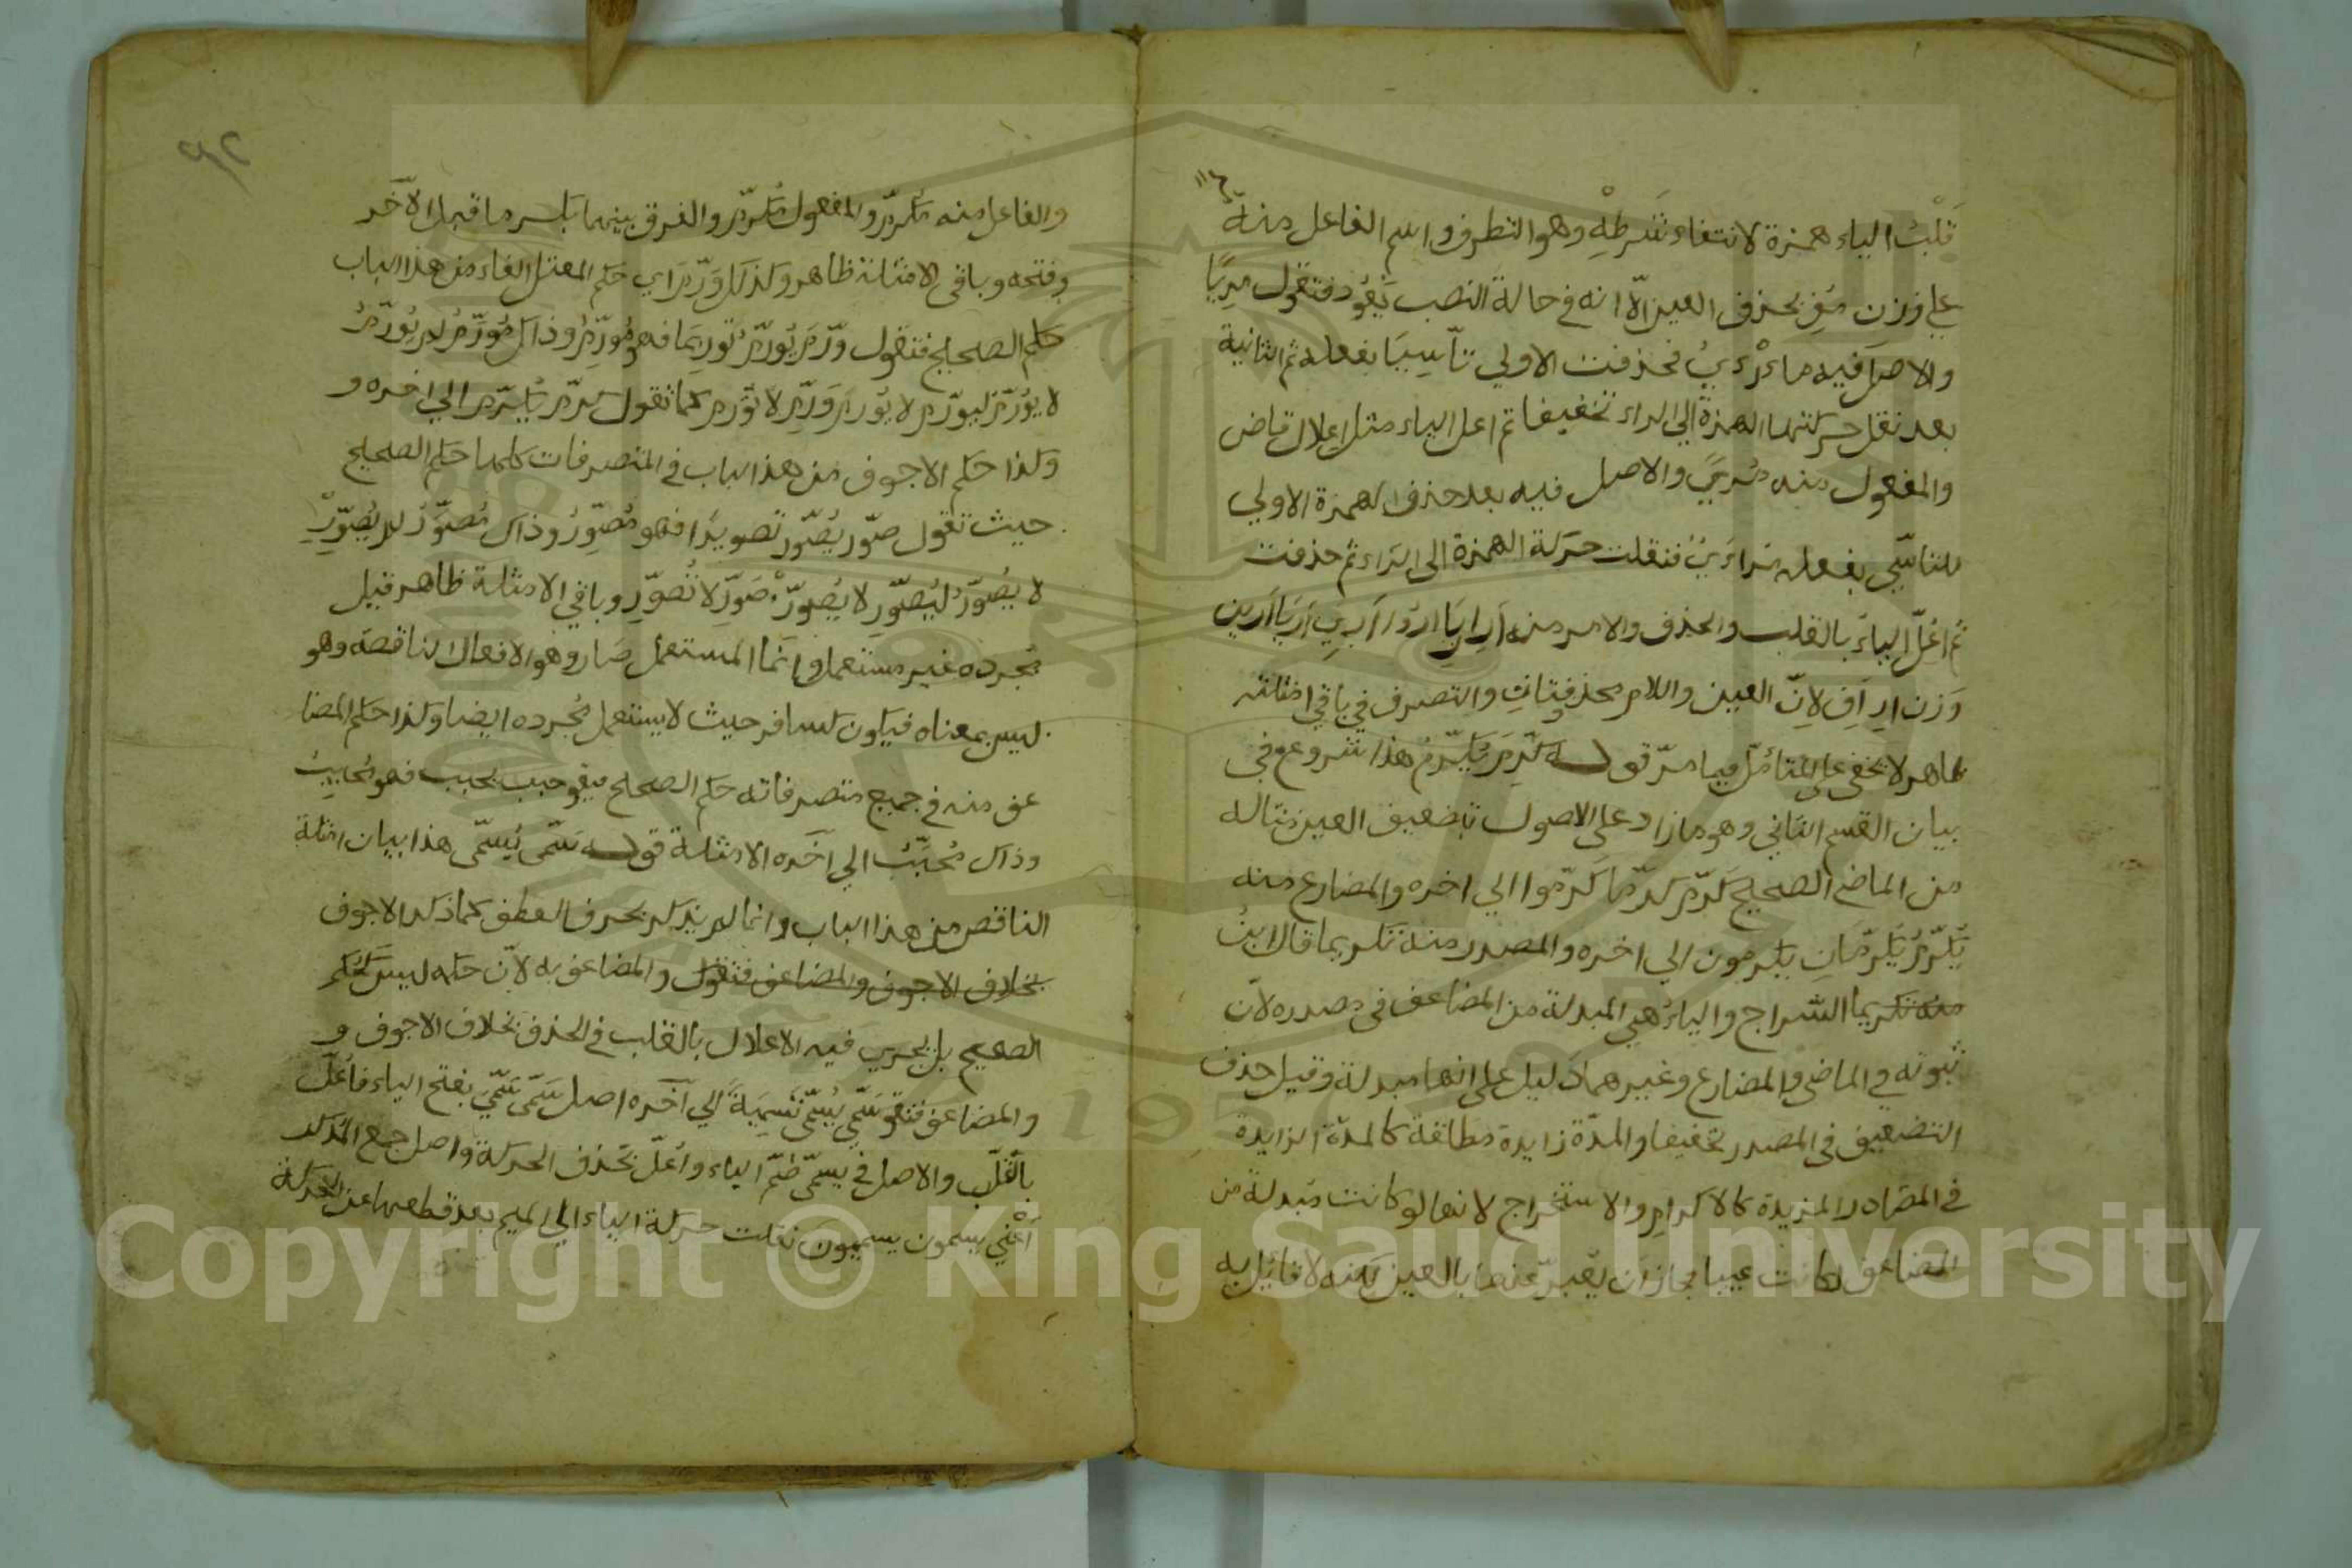 قلبت الياء همزة لانتفاء شرطه وهو التطرف واسم الفاعل منه
على وزن مُفٍ بحذف العين الّا انه في حالة النصب تعود فتقول مريًا
والاصل فيه ماءرءي فحذفت الاولي تأسيا بفعله ثم الثانية
بعد نقل حركتها الهمزة الي الراء تخفيفا ثم اعل الياء مثل اعلال قاض
والمفعول منه مُريً والاصل فيه بعد حذف الهمزة الاولي
للتاسّي بفعله مرءَيٌ فنقلت حركة الهمزة الى الراء ثم حذفت
ثم اعلّ الياء بالقلب والحذف والامر منه أرِ اريا اروا أري أريا أرين
وزن ارِ افِ لانّ العين واللام محذوفتان والتصرف في باقي امثلته
ظاهر لا يخفى على المتأمّل فيما مرّ قوله كرّم يكرّم هذا شروع في
بيان القسم الثاني وهو ما زاد على الاصول بتضعيف العين مثاله
من الماضي الصحيح كرّم كرّما كرّموا الي اخره والمضارع منه
يكرّم يكرّمان يكرمون الي اخره والمصدر منه تكريما قال ابن
منه تكريما السراج والياء هي المبدلة من المضاعف في مصدره لانّ
ثبوته في الماضي والمضارع وغيرهما دليل على انها مبدلة وقيل حذف
التضعيف في المصدر تخفيفا والمدّة زايدة مطلقة كالمدّة الزايدة
في المصادر المزيدة كالاكرام والاستخراج لانها لو كانت مبدلة من
المضاعف لكانت عينا لجاز ان يعبرّ عنها بالعين لكنه لا قائل به
٩٢
والفاعل منه مكرّم والمفعول مكرّم والفرق بينهما بكسر ما قبل الآخر
وفتحه وباقي الامثلة ظاهر وكذلك ورّم اي حكم المعتل الفاء من هذا الباب
حكم الصحيح فتقول ورّم يُورّم توريما فهو مُورِّم وذاك مُورَّم لم يورّم
لا يُورّم ليورّم لا يُورم ورّم لا تورم كما تقول كرّم يُكرّم الي اخره و
كذا حكم الاجوف من هذا الباب في المتصرفات كلها حكم الصحيح
حيث تقول صوّر يُصوّر تصويرًا فهو مُصوِّر وذاك مُصوَّر لم يُصوّر
لا يُصوّر ليُصوّر لا يُصوّر صَوّر لا تُصوّر وباقي الامثلة ظاهر قيل
مُجرده غير مستعمل وانما المستعمل صار وهو الافعال الناقصة وهو
ليس بمعناه فيكون كسافر حيث لا يستعمل مُجرده ايضا وكذا حكم المضا
عف منه في جميع متصرفاته حكم الصحيح فيقو حبب يحبب فهو مُحبِّبٌ
وذاك مُحبَّبٌ الي آخره الامثلة قوله سَمّى يُسمّى هذا بيان امثلة
الناقص من هذا الباب وانما لم يذكر بحرف العطف كما ذكر الاجوف
بخلاف الاجوف والمضاعف فتقول والمضاعف به لانّ حكمه ليس كحكم
الصحيح بل يجري فيه الاعلال بالقلب في الحذف بخلاف الاجوف و
والمضاعف فتقو سمّي يُسمّي تسميةً الي آخره اصل سمّى سَمّيَ بفتح الياء فاُعلّ
بالقلب والاصل في يسمّي ضمّ الياء واُعلّ بحذف الحركة واصل جمع المذكر
أعْني يسمون يسميون نقلت حركة الياء الي الميم بعد قطعها عن الحركة
Copyright © King Saud University
1957